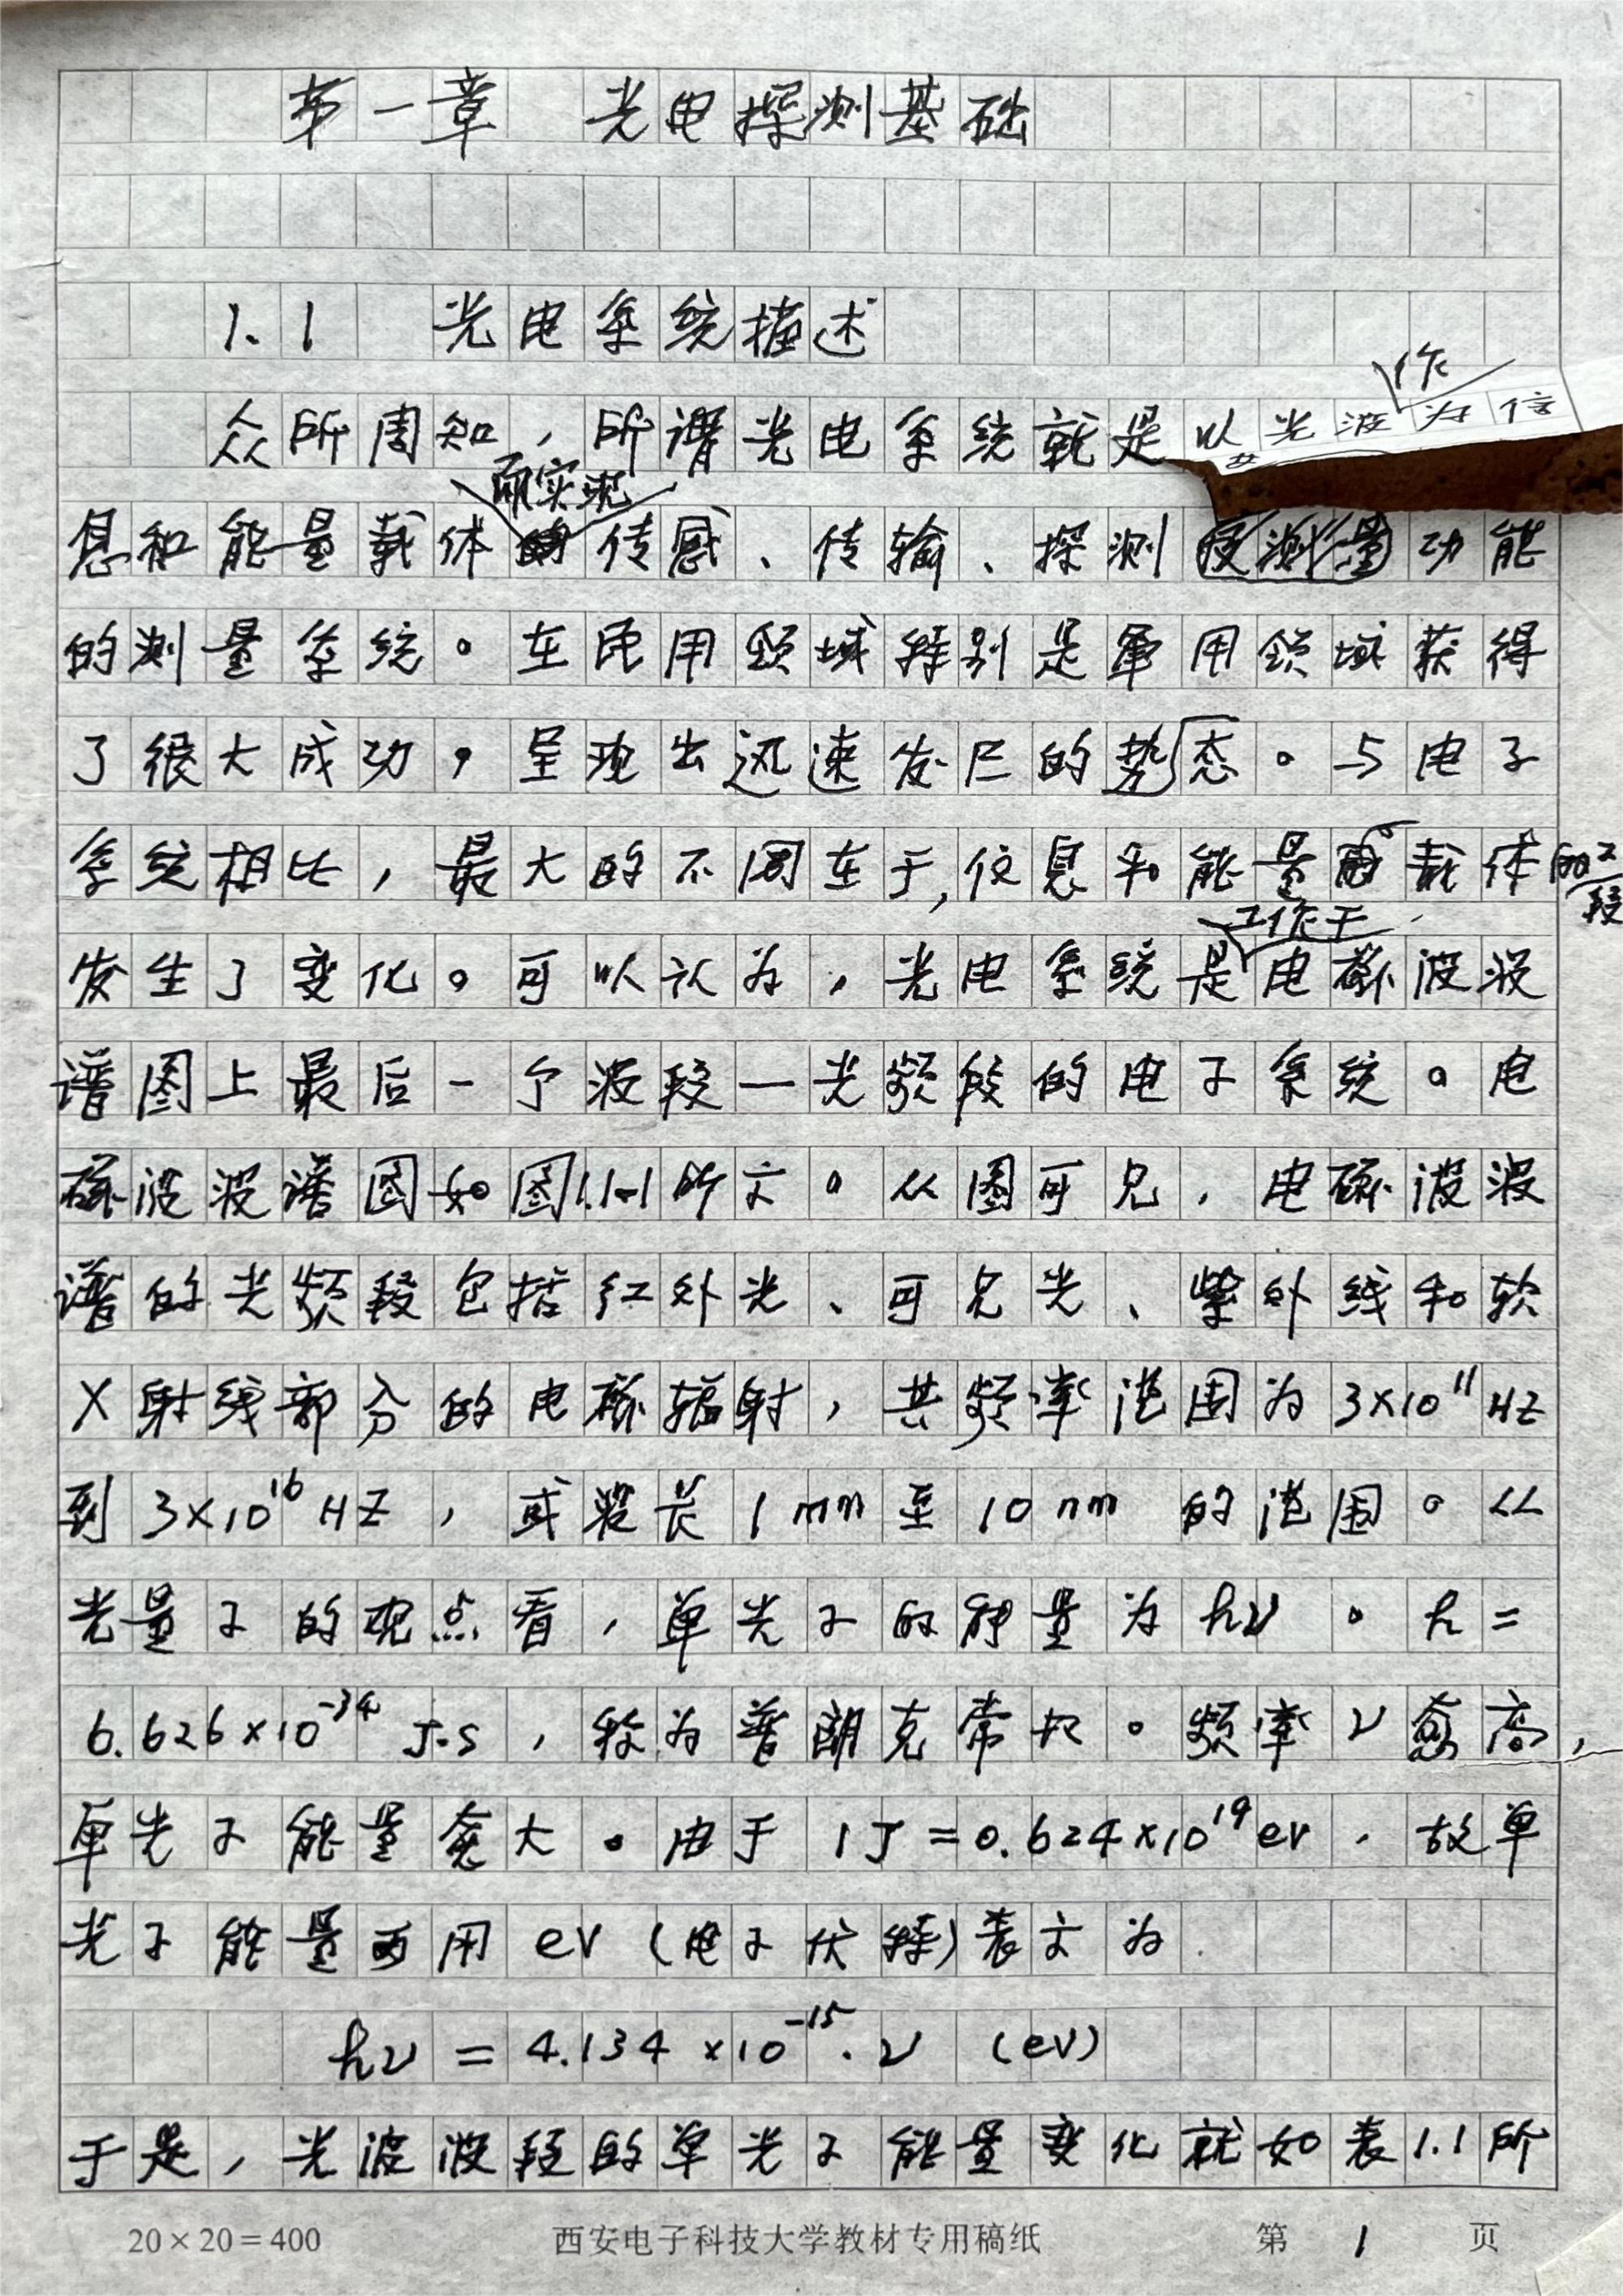 第一章 光电探测基础
1.1 光电系统描述
众所周知，所谓光电系统就是以光波作为信
息和能量载体而实现传感、传输、探测功能
的测量系统。在民用领域特别是军用领域获得
了很大成功，呈现出迅速发展的势态。与电子
系统相比，最大的不同在于，信息和能量载体的
发生了变化。可以认为，光电系统是工作于电磁波波
谱图上最后一个波段—光频段的电子系统。电
磁波波谱图如图1.1-1所示。从图可见，电磁波波
谱的光频段包括红外光、可见光、紫外线和软
X射线部分的电磁辐射，其频率范围为3×10¹¹HZ
到3×10¹⁶HZ，或波长1mm至10nm的范围。从
光量子的观点看，单光子的能量为hν。h=
6.626×10⁻³⁴J·s，称为普朗克常数。频率ν愈高，
单光子能量愈大。由于1J=0.624×10¹⁹ev，故单
光子能量可用ev(电子伏特)表示为
hν=4.134×10⁻¹⁵·ν (ev)
于是，光波波段的单光子能量变化就如表1.1所
20×20=400 西安电子科技大学教材专用稿纸 第1页